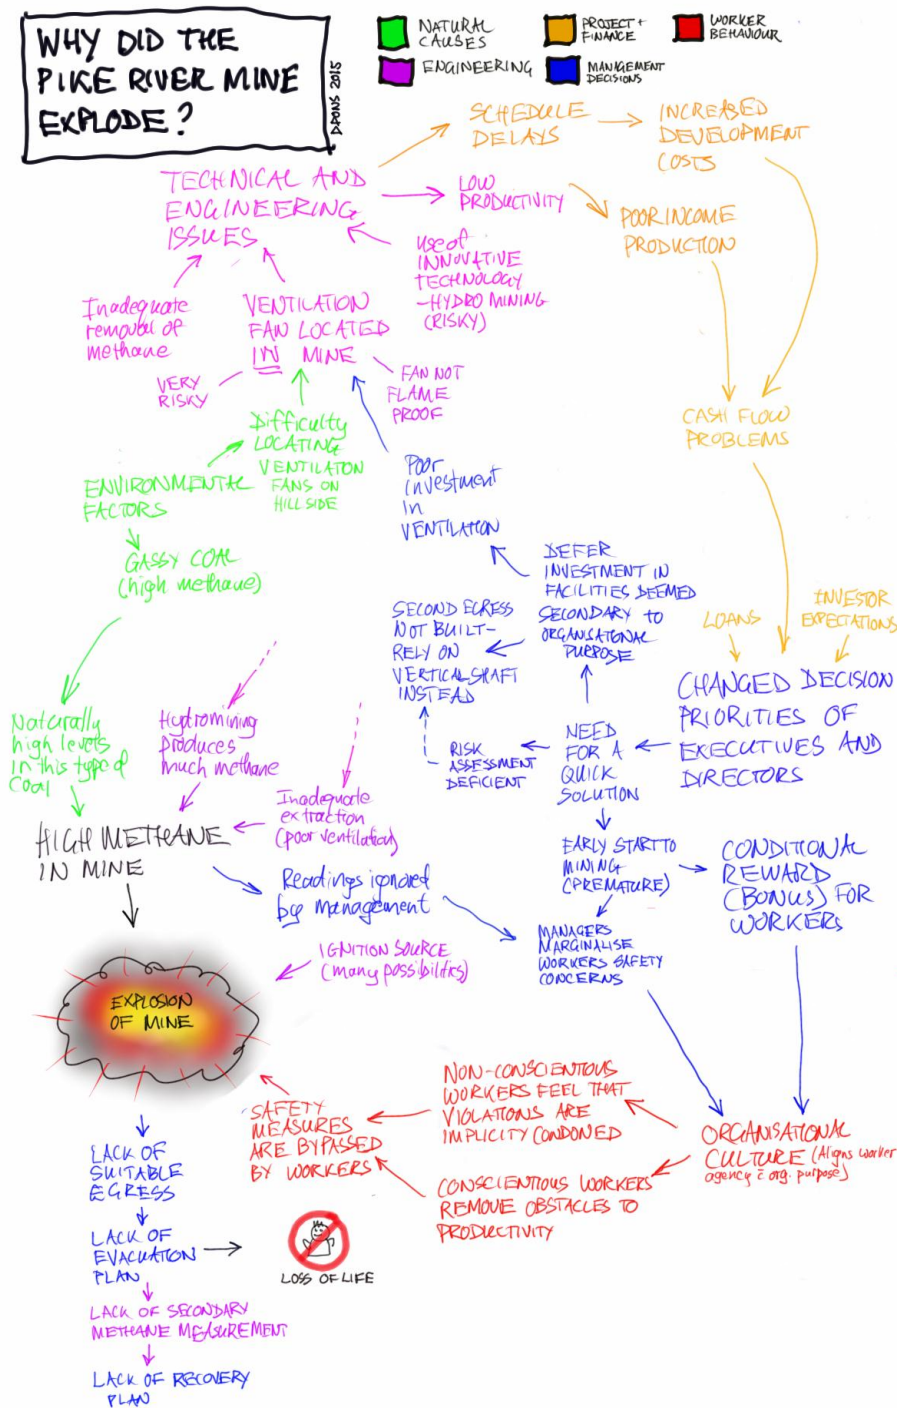 WHY DID THE
PIKE RIVER MINE
EXPLODE?
DPONS 2015
NATURAL
CAUSES
PROJECT +
FINANCE
WORKER
BEHAVIOUR
ENGINEERING
MANAGEMENT
DECISIONS
SCHEDULE
DELAYS
INCREASED
DEVELOPMENT
COSTS
TECHNICAL AND
ENGINEERING
ISSUES
LOW
PRODUCTIVITY
POOR INCOME
PRODUCTION
Use of
INNOVATIVE
TECHNOLOGY
-HYDRO MINING
(RISKY)
Inadequate
removal of
methane
VENTILATION
FAN LOCATED
IN MINE
VERY
RISKY
FAN NOT
FLAME
PROOF
CASH FLOW
PROBLEMS
Difficulty
LOCATING
VENTILATON
FANS ON
HILLSIDE
ENVIRONMENTAL
FACTORS
Poor
investment
in
VENTILATION
GASSY COAL
(high methane)
DEFER
INVESTMENT IN
FACILITIES DEEMED
SECONDARY TO
ORGANISATIONAL
PURPOSE
SECOND EGRESS
NOT BUILT-
RELY ON
VERTICAL SHAFT
INSTEAD
LOANS
INVESTOR
EXPECTATIONS
CHANGED DECISION
PRIORITIES OF
EXECUTIVES AND
DIRECTORS
Naturally
high levels
in this type of
Coal
Hydromining
produces
much methane
RISK
ASSESSMENT
DEFICIENT
NEED
FOR A
QUICK
SOLUTION
Inadequate
extraction
(poor ventilation)
HIGH METHANE
IN MINE
EARLY START TO
MINING
(PREMATURE)
CONDITIONAL
REWARD
(BONUS) FOR
WORKERS
Readings ignored
by management
MANAGERS
MARGINALISE
WORKERS SAFETY
CONCERNS
IGNITION SOURCE
(many possibilities)
EXPLOSION
OF MINE
NON-CONSCIENTIOUS
WORKERS FEEL THAT
VIOLATIONS ARE
IMPLICITY CONDONED
SAFETY
MEASURES
ARE BYPASSED
BY WORKERS
ORGANISATIONAL
CULTURE (Aligns worker
agency c̄ org. purpose)
CONSCIENTIOUS WORKERS
REMOVE OBSTACLES TO
PRODUCTIVITY
LACK OF
SUITABLE
EGRESS
LACK OF
EVACUATION
PLAN
LOSS OF LIFE
LACK OF SECONDARY
METHANE MEASUREMENT
LACK OF RECOVERY
PLAN